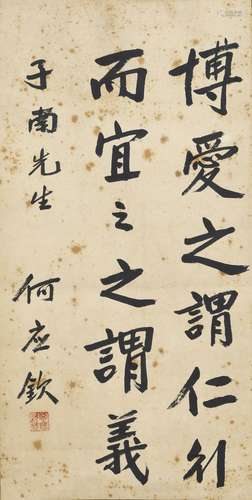 博愛之謂仁行
而宜之之謂義
子南先生 何应欽